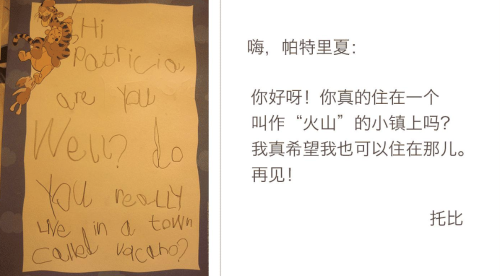 Hi
Patricia
are you
Well? do
you really
Live in a town
called vacano?
嗨，帕特里夏：
你好呀！你真的住在一个
叫作“火山”的小镇上吗？
我真希望我也可以住在那儿。
再见！
托比